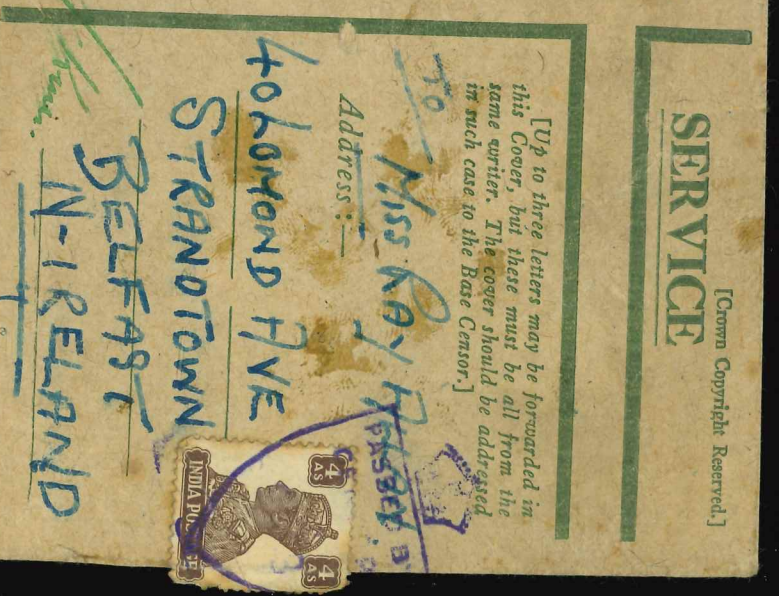 [Crown Copyright Reserved.]
SERVICE
[Up to three letters may be forwarded in
this Cover, but these must be all from the
same writer. The cover should be addressed
in such case to the Base Censor.]
TO
Miss Ray
Address:—
40 LOMOND AVE
STRANDTOWN
BELFAST
N-IRELAND
PASSED B
4
AS
4
AS
INDIA POSTAGE